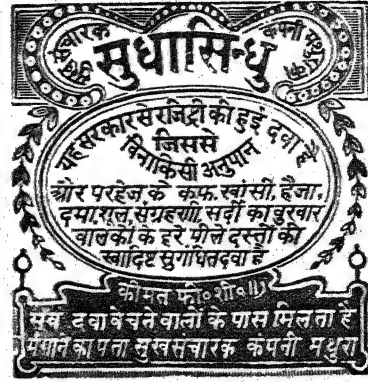 सुखसंचारक कंपनी मथुरा का
सुधासिन्धु
यह सरकार से रजिष्ट्री की हुई दवा है
जिससे
बिना किसी अनुपान
और परहेज के कफ, खांसी, हैजा,
दमा, शूल, संग्रहणी, सर्दी का बुखार
बालकों के हरे पीले दस्तों की
स्वादिष्ट सुगंधित दवा है
कीमत फी॰ शी॰ ॥)
सब दवा बेचने वालों के पास मिलता है
मंगाने का पता सुखसंचारक कंपनी मथुरा